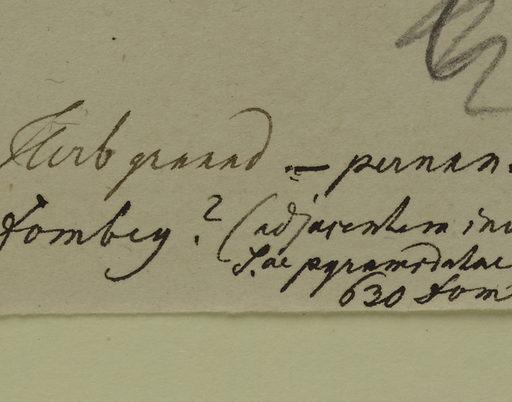 Herb gruand — peruan.
Dombey. ? (adjacentem inv
S. ae pyramidatae
630 Dom